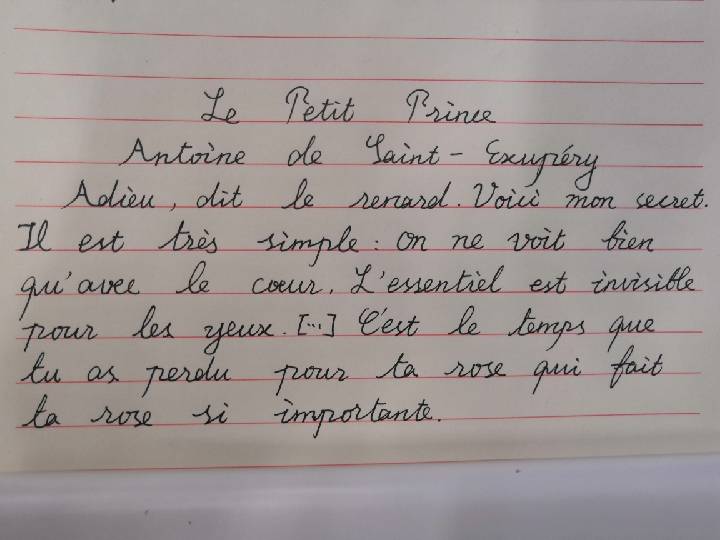 Le Petit Prince
Antoine de Saint-Exupéry
Adieu, dit le renard. Voici mon secret.
Il est très simple : on ne voit bien
qu'avec le cœur. L'essentiel est invisible
pour les yeux. [...] C'est le temps que
tu as perdu pour ta rose qui fait
ta rose si importante.